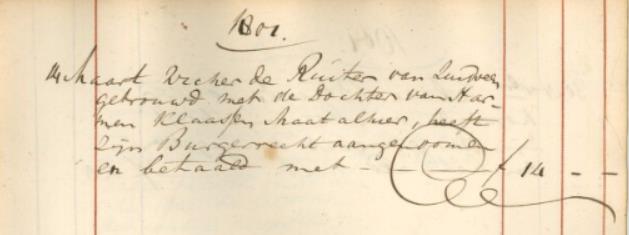 1801.
14 Maart Wicher de Ruiter van Zuidveen
getrouwd met de Dochter van Har-
men Klaassen Maat alhier, heeft
zijn Burgerrecht aangenoomen
en betaald met - - - f 14 - -